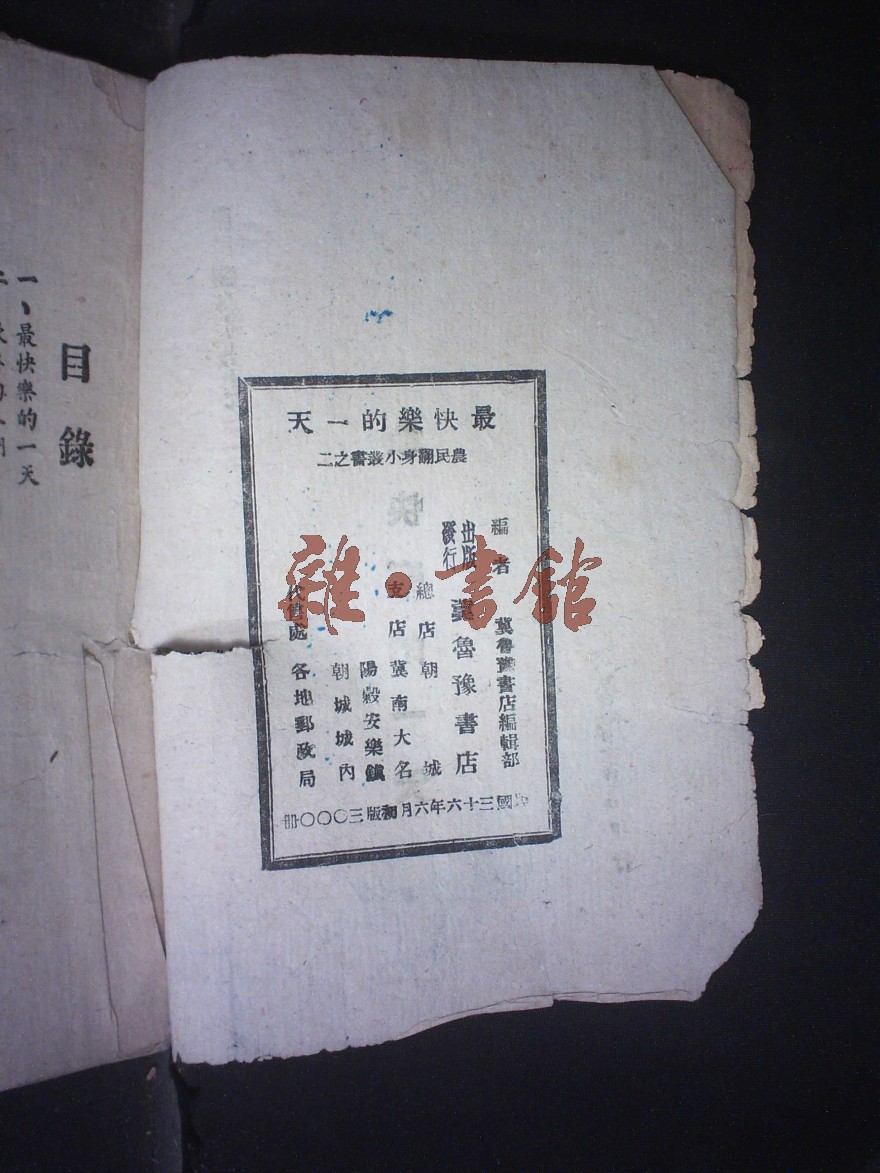 最快樂的一天
農民翻身小叢書之二
編者 冀魯豫書店編輯部
出版
發行
冀魯豫書店
總店 朝城
支店 冀南大名
陽穀安樂鎮
朝城城內
代售處 各地郵政局
民國三十六年六月初版三〇〇〇冊
雜·書館
目錄
一、最快樂的一天